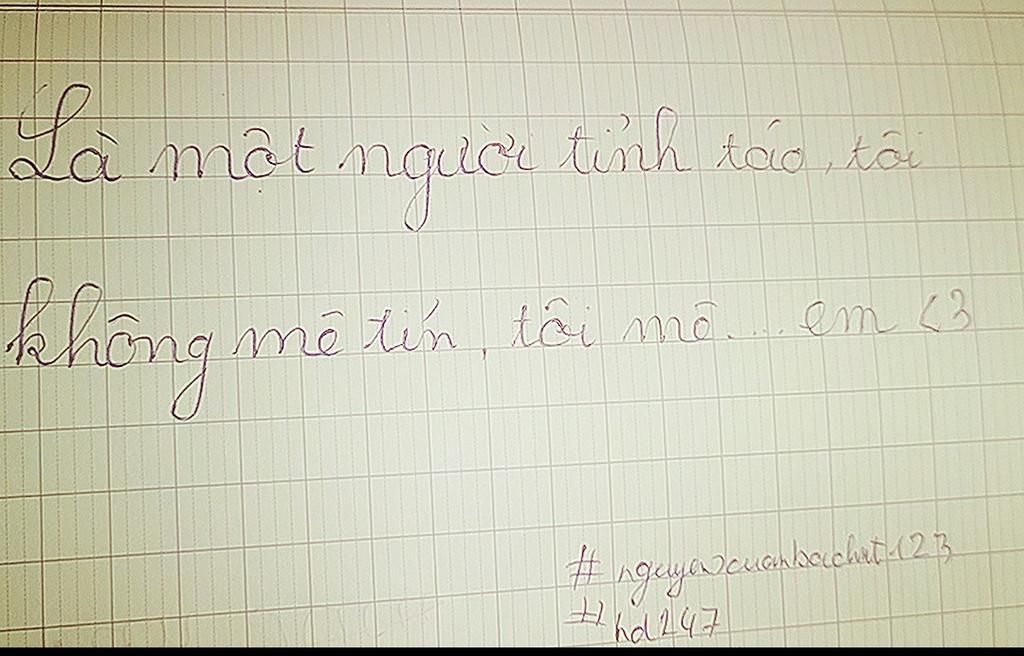 Là một người tỉnh táo, tôi
không mê tín, tôi mê.... em <3
#nguyenxuanbachvt123
#hd247